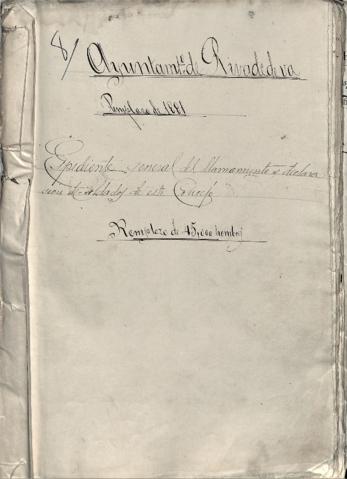 8/ Ayuntamto. de Rivadedeva
Remplazo de 1881
Expediente general del llamamiento y declara
cion de soldados de este Concejo
Remplazo de 45,000 hombs